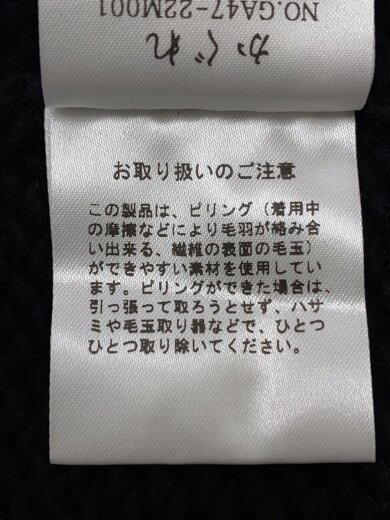 NO.GA47-22M001
かぐれ
お取り扱いのご注意
この製品は、ピリング（着用中
の摩擦などにより毛羽が絡み合
い出来る、繊維の表面の毛玉）
ができやすい素材を使用してい
ます。ピリングができた場合は、
引っ張って取ろうとせず、ハサ
ミや毛玉取り器などで、ひとつ
ひとつ取り除いてください。